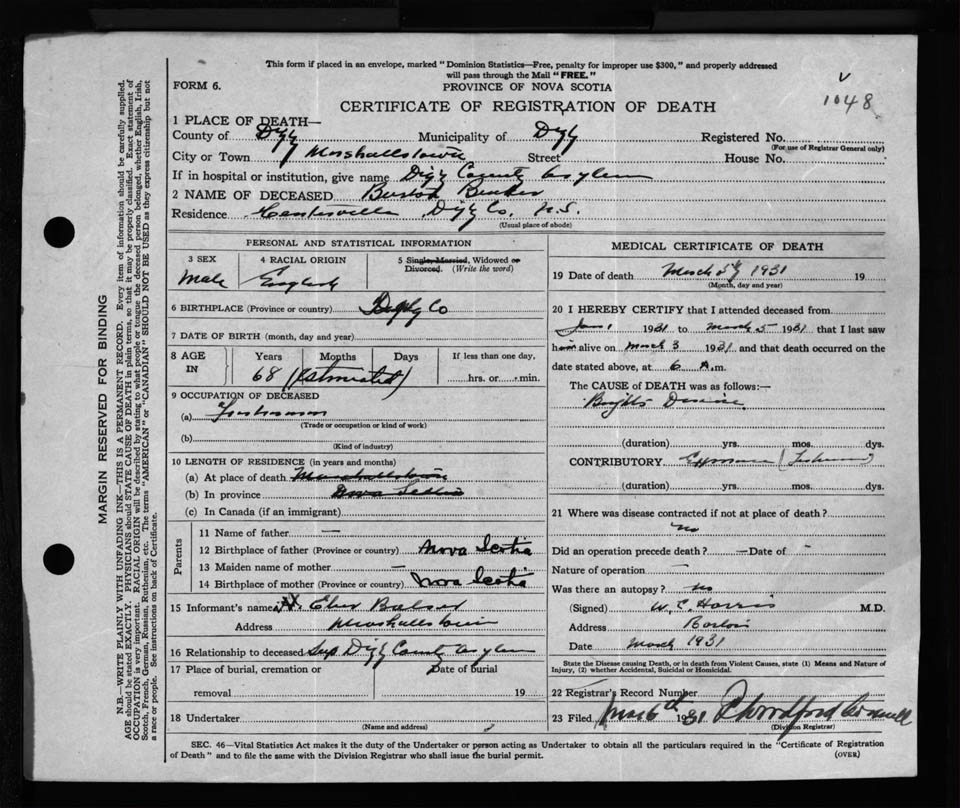 This form if placed in an envelope, marked "Dominion Statistics—Free, penalty for improper use $300," and properly addressed
will pass through the Mail "FREE."
FORM 6. PROVINCE OF NOVA SCOTIA
1048
CERTIFICATE OF REGISTRATION OF DEATH
1 PLACE OF DEATH—
County of Digby Municipality of Digby Registered No.
(For use of Registrar General only)
City or Town Marshalltown Street House No.
If in hospital or institution, give name Digby County Asylum
2 NAME OF DECEASED
Residence Centreville Digby Co. N.S.
(Usual place of abode)
PERSONAL AND STATISTICAL INFORMATION
3 SEX 4 RACIAL ORIGIN 5 Single, Married, Widowed or
Divorced. (Write the word)
Male English
6 BIRTHPLACE (Province or country) Digby Co
7 DATE OF BIRTH (month, day and year)
8 AGE IN Years Months Days If less than one day,
68 (Estimated) hrs. or min.
9 OCCUPATION OF DECEASED
(a) Fisherman
(Trade or occupation or kind of work)
(b)
(Kind of industry)
10 LENGTH OF RESIDENCE (in years and months)
(a) At place of death Marshalltown
(b) In province Nova Scotia
(c) In Canada (if an immigrant)
Parents
11 Name of father —
12 Birthplace of father (Province or country) Nova Scotia
13 Maiden name of mother —
14 Birthplace of mother (Province or country) Nova Scotia
15 Informant's name Eber
Address Marshalltown
16 Relationship to deceased Supt Digby County Asylum
17 Place of burial, cremation or Date of burial
removal 19
18 Undertaker
(Name and address)
MEDICAL CERTIFICATE OF DEATH
19 Date of death March 5th 1931 19
(Month, day and year)
20 I HEREBY CERTIFY that I attended deceased from
Jan 1 1931 to March 5 1931 that I last saw
him alive on March 3 1931 and that death occurred on the
date stated above, at 6 A.m.
The CAUSE of DEATH was as follows:—
Brights Disease
(duration) yrs. mos. dys.
CONTRIBUTORY Exposure (Fisherman)
(duration) yrs. mos. dys.
21 Where was disease contracted if not at place of death?
no
Did an operation precede death? — Date of -
Nature of operation
Was there an autopsy? no
(Signed) W. C. Harris M.D.
Address Barton
Date March 1931
State the Disease causing Death, or in death from Violent Causes, state (1) Means and Nature of
Injury, (2) whether Accidental, Suicidal or Homicidal.
22 Registrar's Record Number
23 Filed Mar 6th 1931
(Division Registrar)
SEC. 46—Vital Statistics Act makes it the duty of the Undertaker or person acting as Undertaker to obtain all the particulars required in the "Certificate of Registration
of Death" and to file the same with the Division Registrar who shall issue the burial permit. (OVER)
MARGIN RESERVED FOR BINDING
N.B.—WRITE PLAINLY WITH UNFADING INK—THIS IS A PERMANENT RECORD. Every item of information should be carefully supplied.
AGE should be stated EXACTLY. PHYSICIANS should STATE CAUSE OF DEATH in plain terms, so that it may be properly classified. Exact statement of
OCCUPATION is very important. RACIAL ORIGIN will be described by stating to what people or tongue the deceased person belonged, whether English, Irish,
Scotch, French, German, Russian, Ruthenian, etc. The terms "AMERICAN" or "CANADIAN" SHOULD NOT BE USED as they express citizenship but not
a race or people. See instructions on back of Certificate.